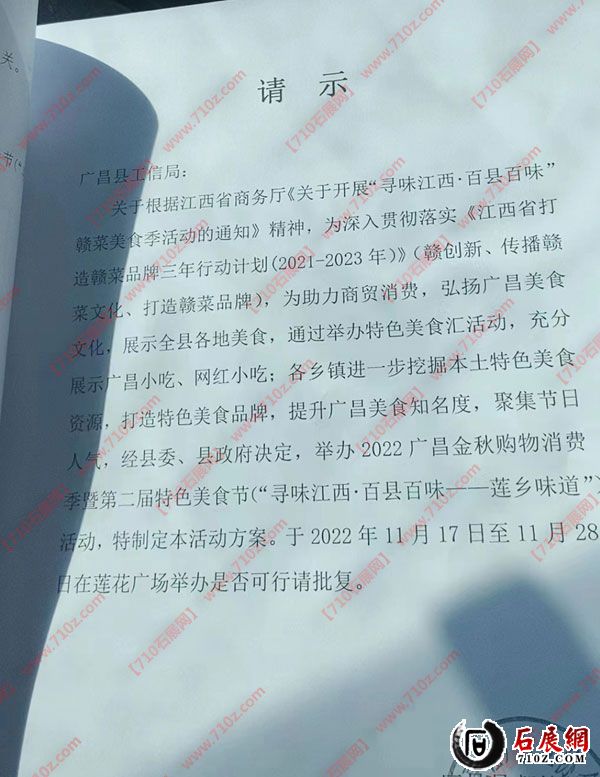 请 示
关。
广昌县工信局：
关于根据江西省商务厅《关于开展“寻味江西·百县百味”
赣菜美食季活动的通知》精神，为深入贯彻落实《江西省打
造赣菜品牌三年行动计划(2021-2023年)》（赣创新、传播赣
菜文化、打造赣菜品牌），为助力商贸消费，弘扬广昌美食
文化，展示全县各地美食，通过举办特色美食汇活动，充分
展示广昌小吃、网红小吃；各乡镇进一步挖掘本土特色美食
资源，打造特色美食品牌，提升广昌美食知名度，聚集节日
人气，经县委、县政府决定，举办2022广昌金秋购物消费
季暨第二届特色美食节(“寻味江西·百县百味——莲乡味道”)
活动，特制定本活动方案。于2022年11月17日至11月28
日在莲花广场举办是否可行请批复。
节(“
【710石展网】
www.710z.com
石展網
710Z.COM